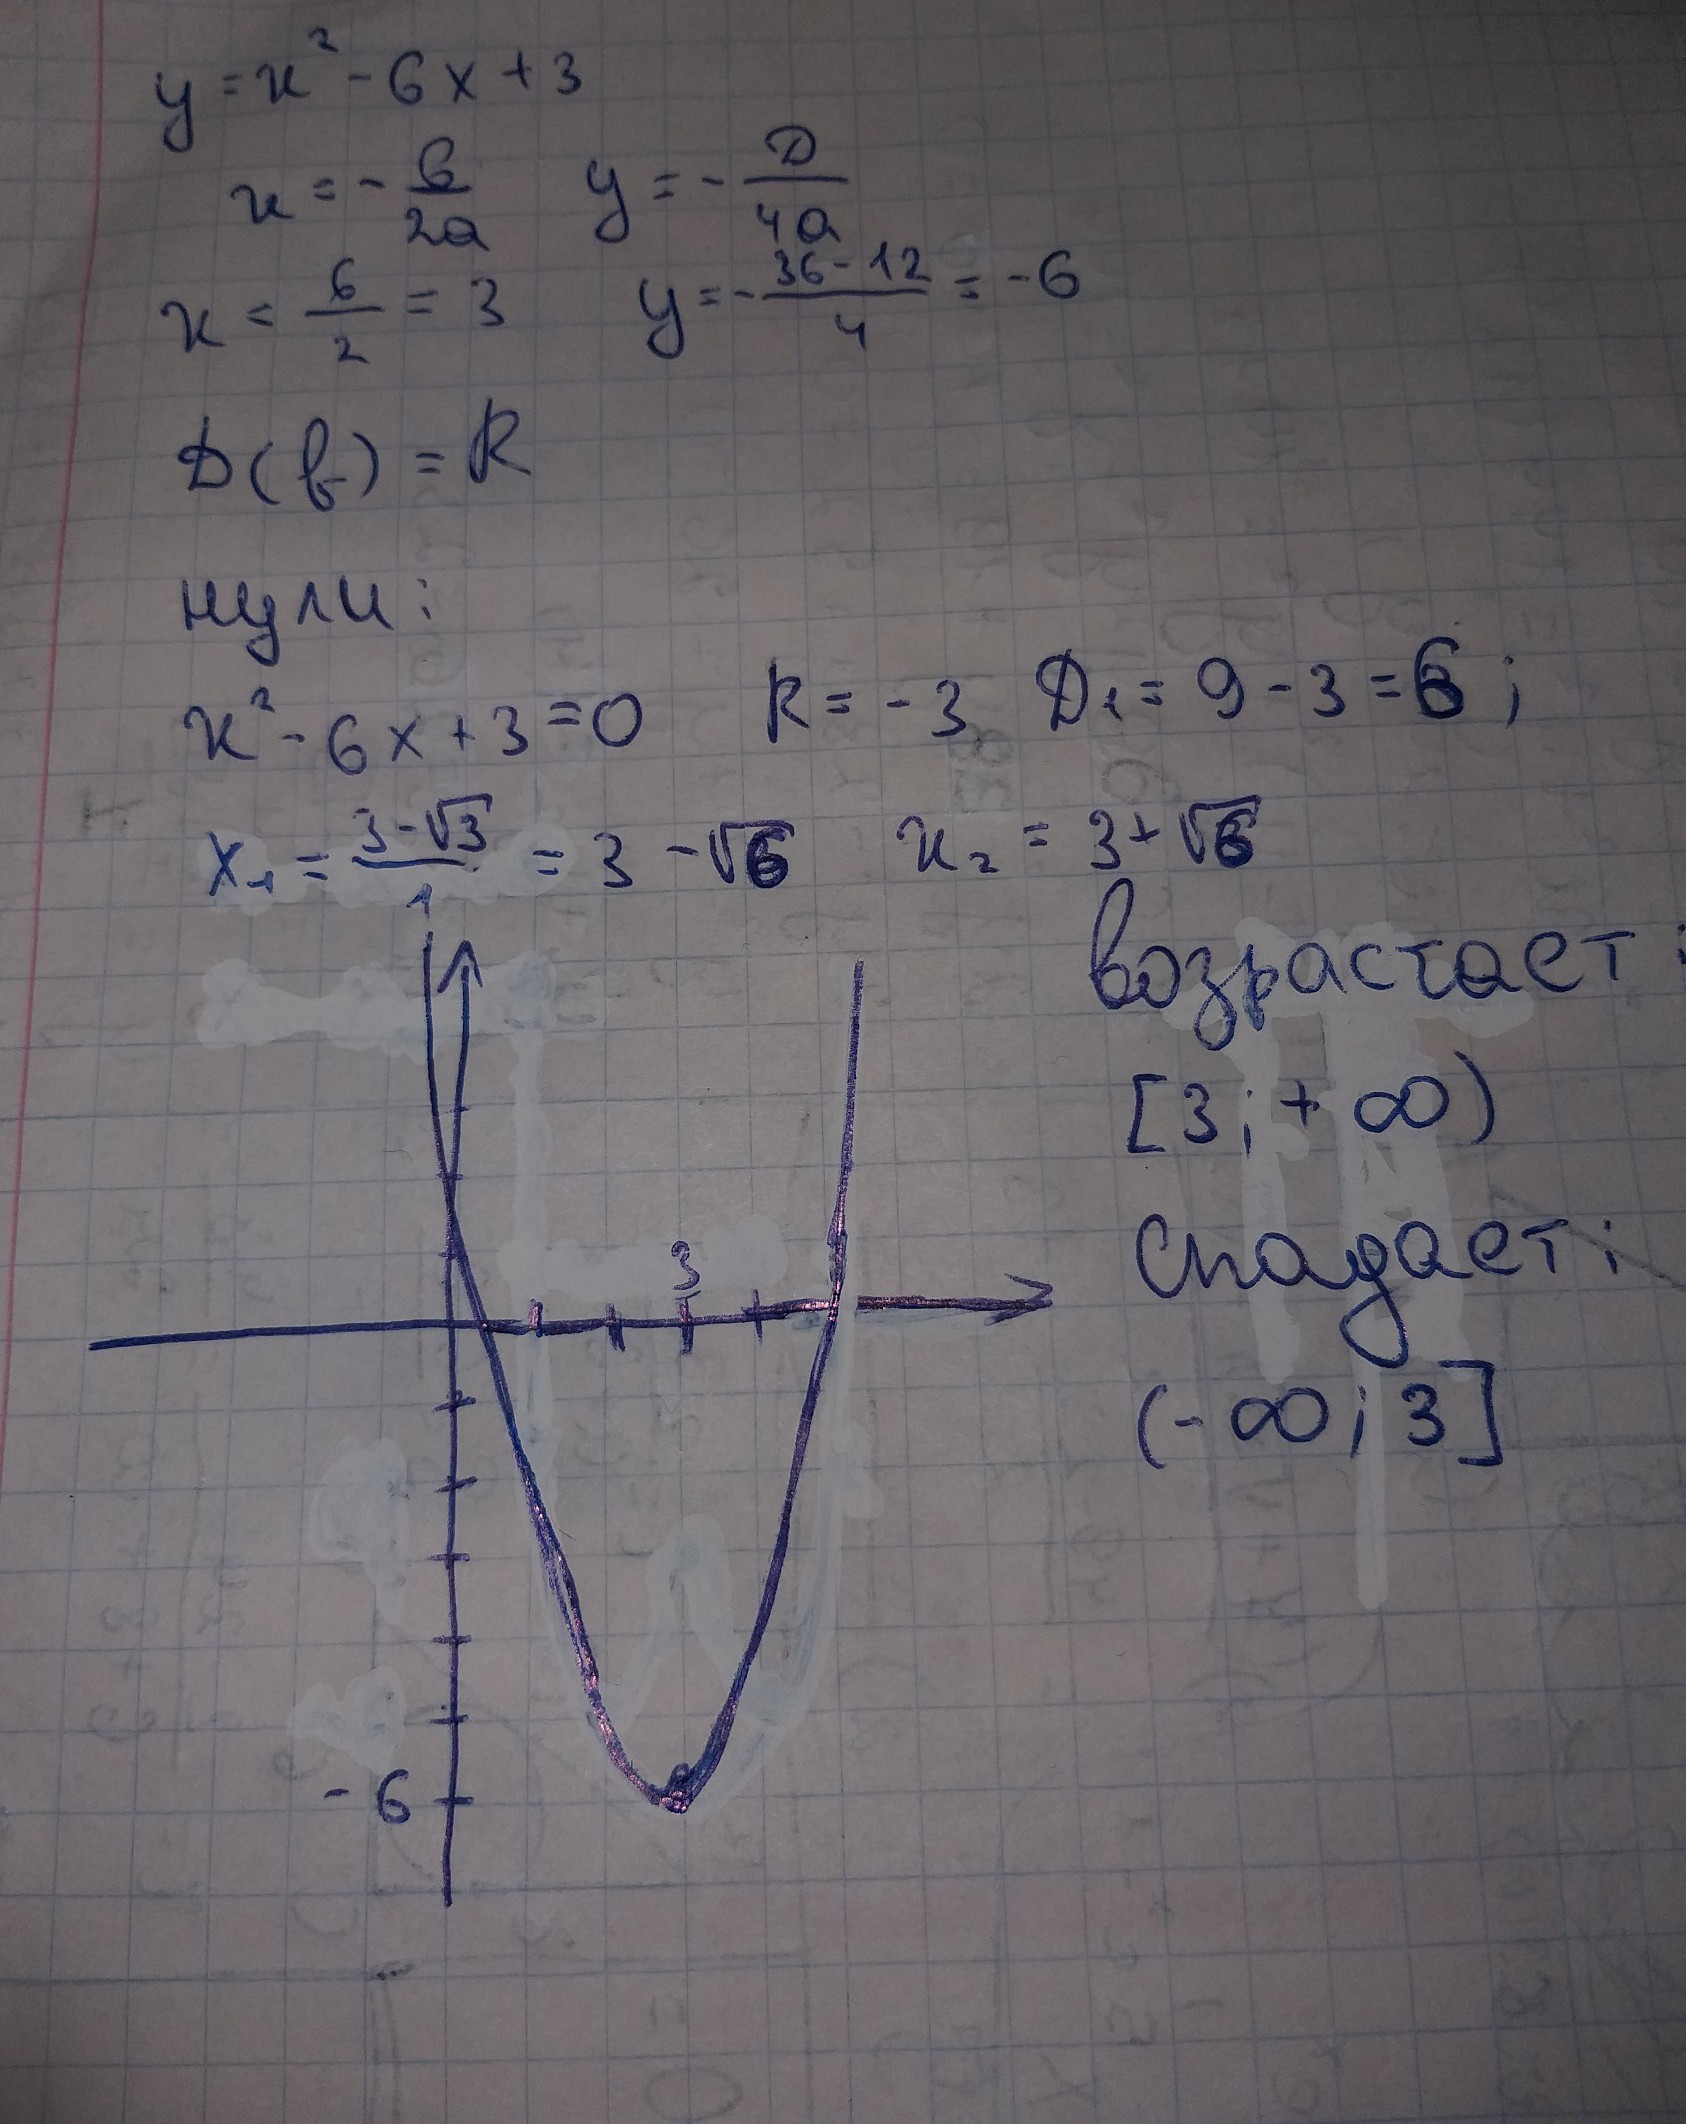 y = x² - 6x + 3
x = - б/2a y = - D/4a
x = 6/2 = 3 y = - 36-12/4 = -6
D(b) = R
нули:
x² - 6x + 3 = 0 k = -3 D₁ = 9 - 3 = 6;
x₁ = 3-√3/1 = 3 - √6 x₂ = 3 + √6
возрастает:
[3; + ∞)
3
спадает:
(- ∞; 3]
- 6